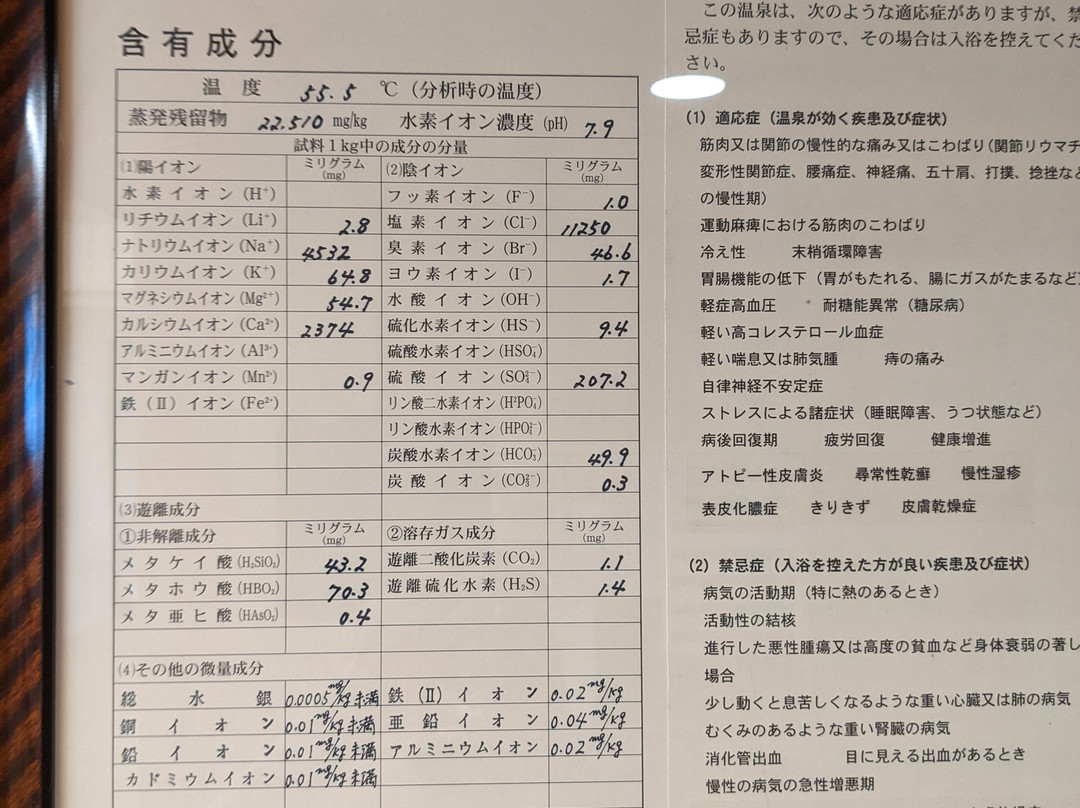 含有成分
温度 55.5 ℃（分析時の温度）
蒸発残留物 22.510 mg/kg 水素イオン濃度 (pH) 7.9
試料1kg中の成分の分量
⑴陽イオン ミリグラム(mg) ⑵陰イオン ミリグラム(mg)
水素イオン (H⁺) フッ素イオン (F⁻) 1.0
リチウムイオン (Li⁺) 2.8 塩素イオン (Cl⁻) 11250
ナトリウムイオン (Na⁺) 4532 臭素イオン (Br⁻) 46.6
カリウムイオン (K⁺) 64.8 ヨウ素イオン (I⁻) 1.7
マグネシウムイオン (Mg²⁺) 54.7 水酸イオン (OH⁻)
カルシウムイオン (Ca²⁺) 2374 硫化水素イオン (HS⁻) 9.4
アルミニウムイオン (Al³⁺) 硫酸水素イオン (HSO₄⁻)
マンガンイオン (Mn²⁺) 0.9 硫酸イオン (SO₄²⁻) 207.2
鉄（Ⅱ）イオン (Fe²⁺) リン酸二水素イオン (H²PO₄⁻)
リン酸水素イオン (HPO₄²⁻)
炭酸水素イオン (HCO₃⁻) 49.9
炭酸イオン (CO₃²⁻) 0.3
⑶遊離成分
①非解離成分 ミリグラム(mg) ②溶存ガス成分 ミリグラム(mg)
メタケイ酸 (H₂SiO₃) 43.2 遊離二酸化炭素 (CO₂) 1.1
メタホウ酸 (HBO₂) 70.3 遊離硫化水素 (H₂S) 1.4
メタ亜ヒ酸 (HAsO₂) 0.4
⑷その他の微量成分
総水銀 0.0005mg/kg未満 鉄（Ⅱ）イオン 0.02mg/kg
銅イオン 0.01mg/kg未満 亜鉛イオン 0.04mg/kg
鉛イオン 0.01mg/kg未満 アルミニウムイオン 0.02mg/kg
カドミウムイオン 0.01mg/kg未満
この温泉は、次のような適応症がありますが、禁
忌症もありますので、その場合は入浴を控えてくだ
さい。
(1) 適応症（温泉が効く疾患及び症状）
筋肉又は関節の慢性的な痛み又はこわばり(関節リウマチ
変形性関節症、腰痛症、神経痛、五十肩、打撲、捻挫など
の慢性期）
運動麻痺における筋肉のこわばり
冷え性 末梢循環障害
胃腸機能の低下（胃がもたれる、腸にガスがたまるなど）
軽症高血圧 耐糖能異常（糖尿病）
軽い高コレステロール血症
軽い喘息又は肺気腫 痔の痛み
自律神経不安定症
ストレスによる諸症状（睡眠障害、うつ状態など）
病後回復期 疲労回復 健康増進
アトピー性皮膚炎 尋常性乾癬 慢性湿疹
表皮化膿症 きりきず 皮膚乾燥症
(2) 禁忌症（入浴を控えた方が良い疾患及び症状）
病気の活動期（特に熱のあるとき）
活動性の結核
進行した悪性腫瘍又は高度の貧血など身体衰弱の著し
場合
少し動くと息苦しくなるような重い心臓又は肺の病気
むくみのあるような重い腎臓の病気
消化管出血 目に見える出血があるとき
慢性の病気の急性増悪期